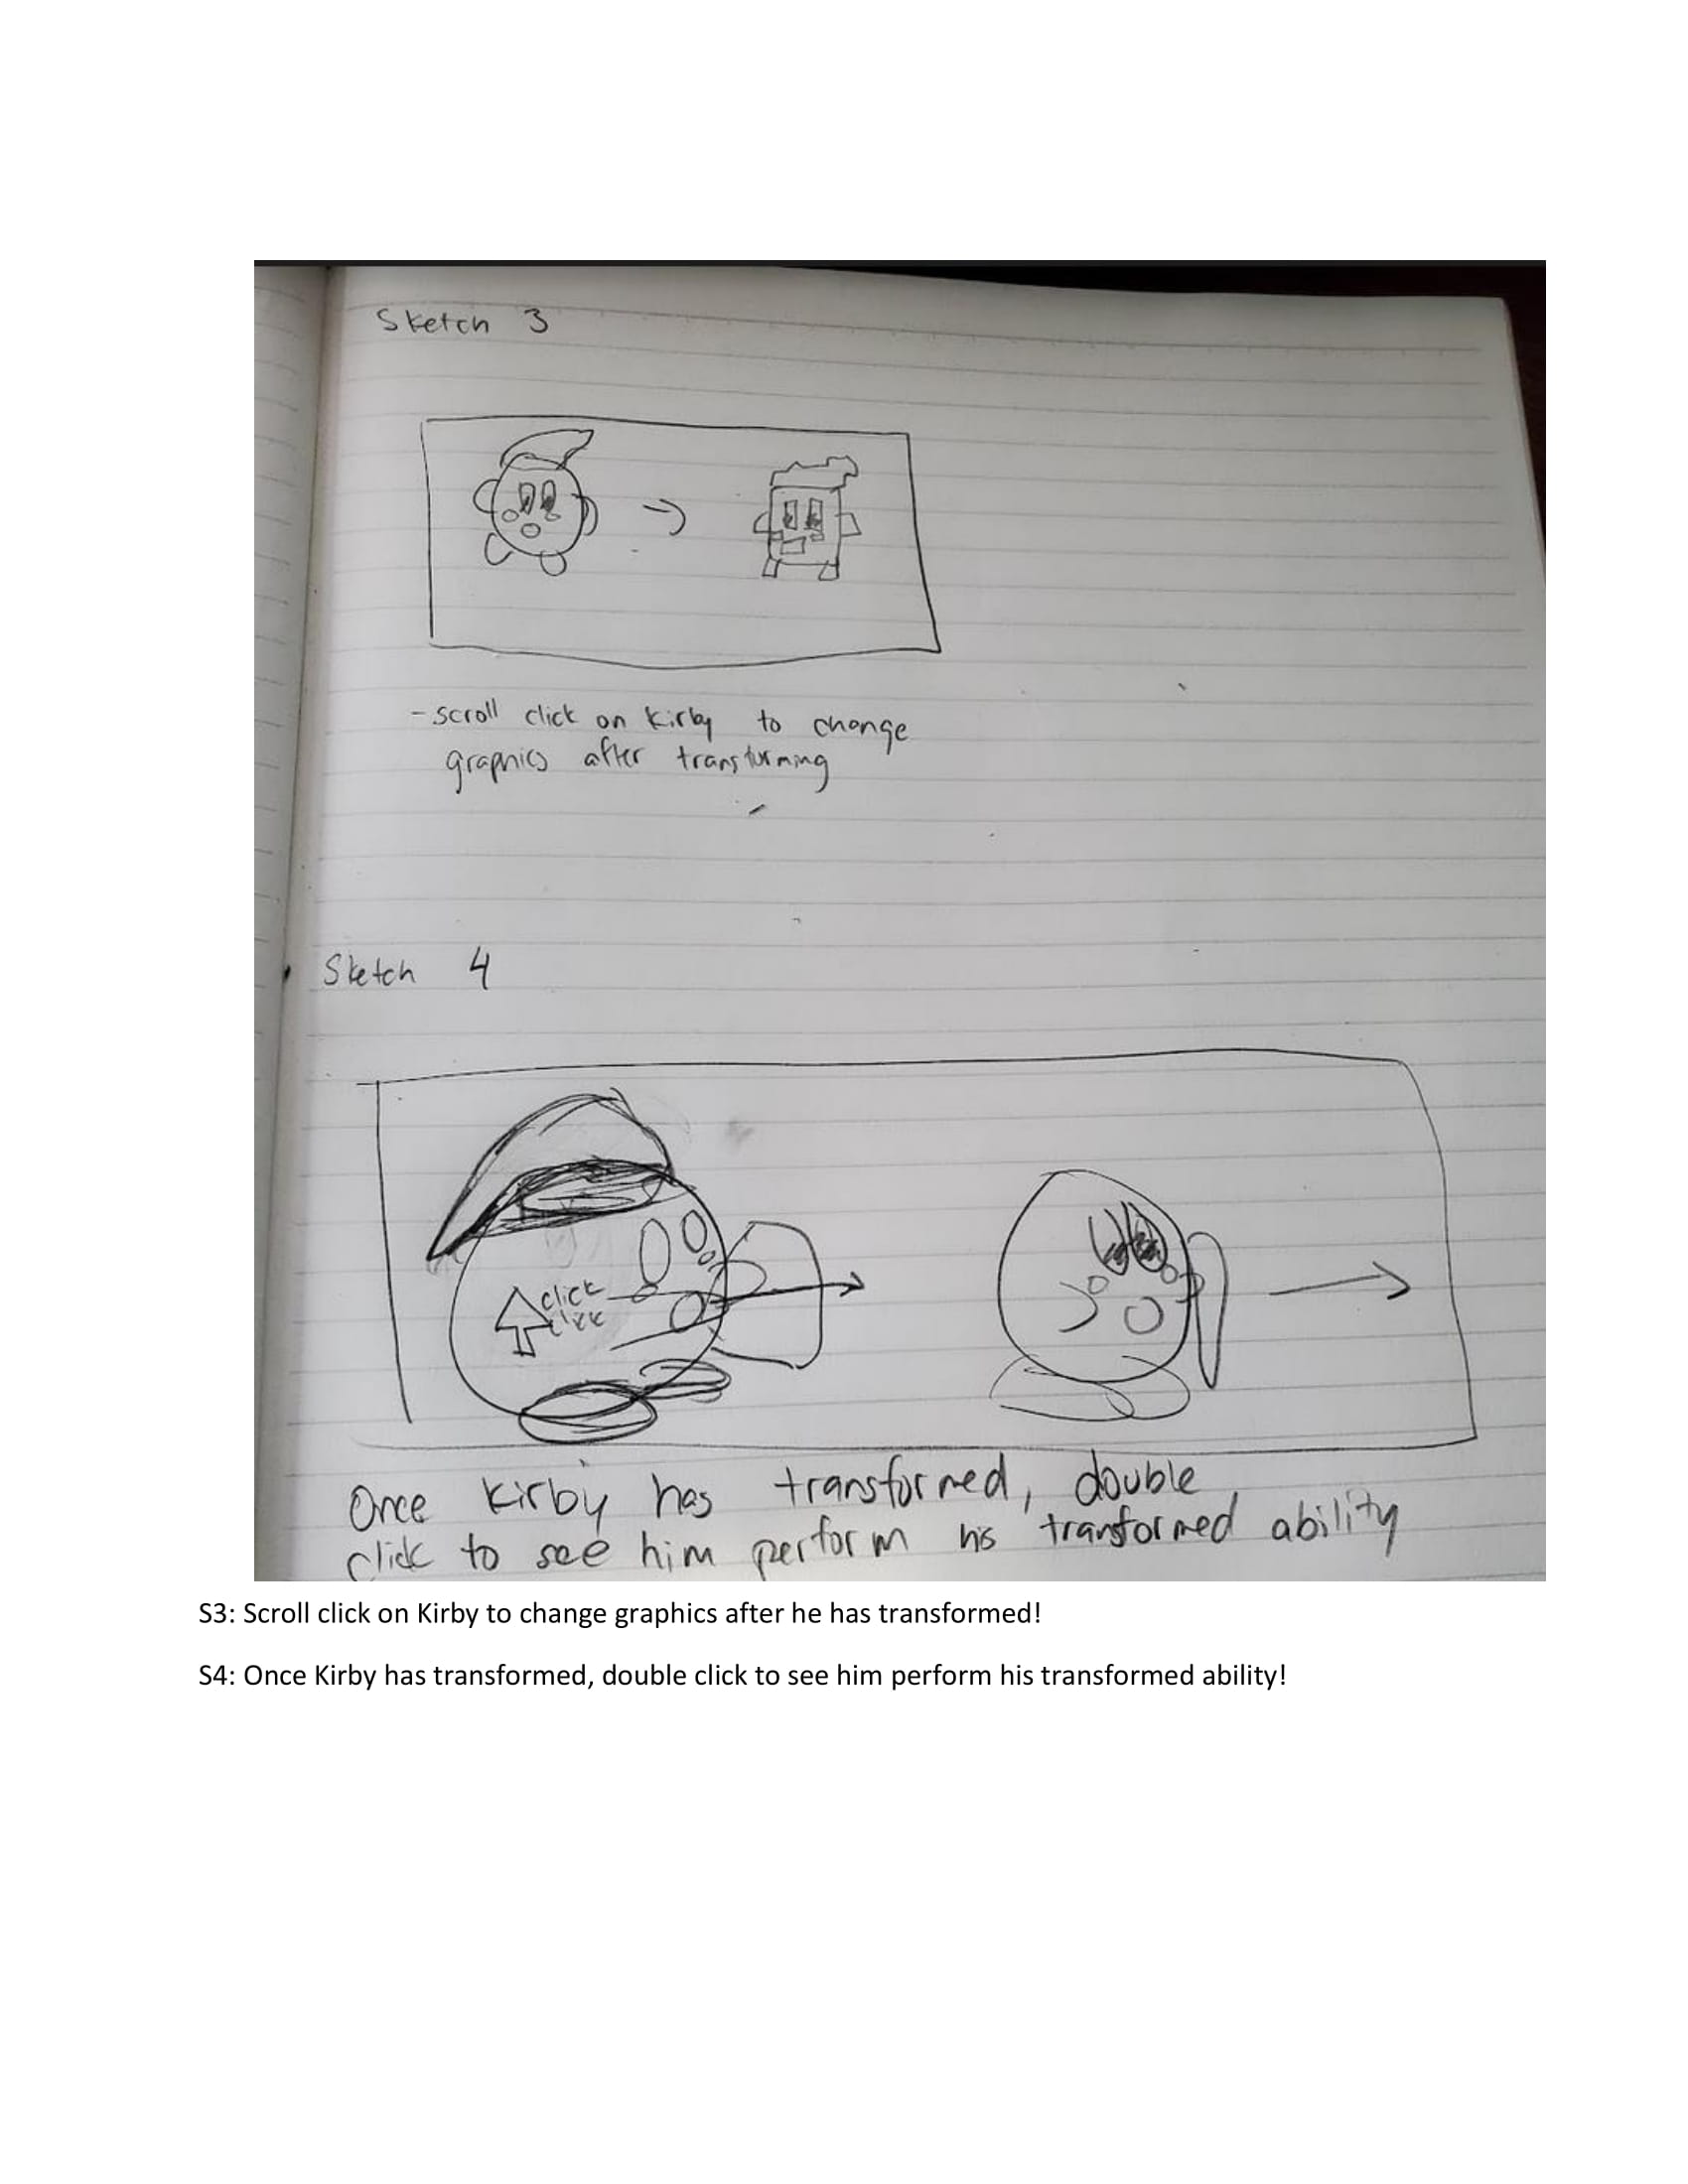 Sketch 3
- scroll click on Kirby to change
graphics after transforming
Sketch 4
click
click
Once Kirby has transformed, double
click to see him perform his transformed ability
S3: Scroll click on Kirby to change graphics after he has transformed!
S4: Once Kirby has transformed, double click to see him perform his transformed ability!